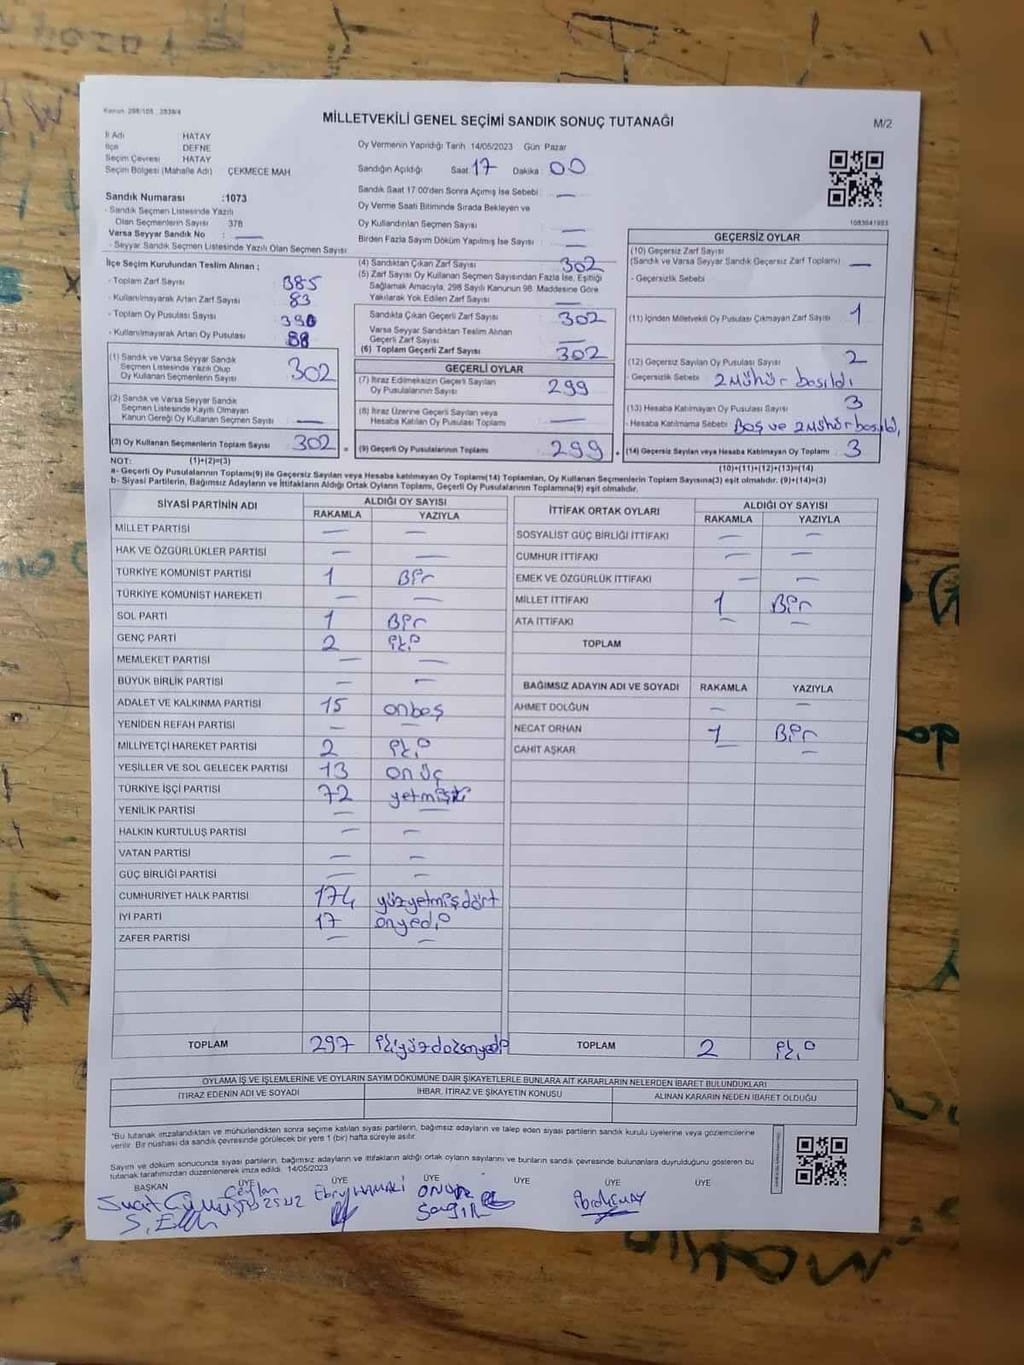 Kanun: 298/105 , 2839/4
MİLLETVEKİLİ GENEL SEÇİMİ SANDIK SONUÇ TUTANAĞI
M/2
İl Adı HATAY
İlçe DEFNE
Seçim Çevresi HATAY
Seçim Bölgesi (Mahalle Adı) ÇEKMECE MAH.
Sandık Numarası :1073
- Sandık Seçmen Listesinde Yazılı
Olan Seçmenlerin Sayısı 378
Varsa Seyyar Sandık No : —
- Seyyar Sandık Seçmen Listesinde Yazılı Olan Seçmen Sayısı
Oy Vermenin Yapıldığı Tarih 14/05/2023 Gün Pazar
Sandığın Açıldığı Saat 17 Dakika : 00
Sandık Saat 17:00'den Sonra Açımış İse Sebebi —
Oy Verme Saati Bitiminde Sırada Bekleyen ve
Oy Kullandırılan Seçmen Sayısı —
Birden Fazla Sayım Döküm Yapılmış İse Sayısı —
İlçe Seçim Kurulundan Teslim Alınan ;
- Toplam Zarf Sayısı 385
- Kullanılmayarak Artan Zarf Sayısı 83
- Toplam Oy Pusulası Sayısı 390
- Kullanılmayarak Artan Oy Pusulası 88
(1) Sandık ve Varsa Seyyar Sandık
Seçmen Listesinde Yazılı Olup
Oy Kullanan Seçmenlerin Sayısı 302
(2) Sandık ve Varsa Seyyar Sandık
Seçmen Listesinde Kayıtlı Olmayan
Kanun Gereği Oy Kullanan Seçmen Sayısı —
(3) Oy Kullanan Seçmenlerin Toplam Sayısı 302
(1)+(2)=(3)
(4) Sandıktan Çıkan Zarf Sayısı 302
(5) Zarf Sayısı Oy Kullanan Seçmen Sayısından Fazla İse, Eşitliği
Sağlamak Amacıyla, 298 Sayılı Kanunun 98. Maddesine Göre
Yakılarak Yok Edilen Zarf Sayısı —
Sandıkta Çıkan Geçerli Zarf Sayısı 302
Varsa Seyyar Sandıktan Teslim Alınan
Geçerli Zarf Sayısı —
(6) Toplam Geçerli Zarf Sayısı 302
GEÇERLİ OYLAR
(7) İtiraz Edilmeksizin Geçerli Sayılan
Oy Pusulalarının Sayısı 299
(8) İtiraz Üzerine Geçerli Sayılan veya
Hesaba Katılan Oy Pusulaları Toplamı —
(9) Geçerli Oy Pusulalarının Toplamı 299
1083841983
GEÇERSİZ OYLAR
(10) Geçersiz Zarf Sayısı
(Sandık ve Varsa Seyyar Sandık Geçersiz Zarf Toplamı) —
- Geçersizlik Sebebi
(11) İçinden Milletvekili Oy Pusulası Çıkmayan Zarf Sayısı 1
(12) Geçersiz Sayılan Oy Pusulası Sayısı 2
- Geçersizlik Sebebi 2 mühür basıldı
(13) Hesaba Katılmayan Oy Pusulası Sayısı 3
- Hesaba Katılmama Sebebi Boş ve 2 mühür basıldı,
(14) Geçersiz Sayılan veya Hesaba Katılmayan Oy Toplamı 3
(10)+(11)+(12)+(13)=(14)
NOT:
a- Geçerli Oy Pusulalarının Toplamı(9) ile Geçersiz Sayılan veya Hesaba katılmayan Oy Toplamı(14) Toplamları, Oy Kullanan Seçmenlerin Toplam Sayısına(3) eşit olmalıdır. (9)+(14)=(3)
b- Siyasi Partilerin, Bağımsız Adayların ve İttifakların Aldığı Ortak Oyların Toplamı, Geçerli Oy Pusulalarının Toplamına(9) eşit olmalıdır.
SİYASİ PARTİNİN ADI ALDIĞI OY SAYISI
RAKAMLA YAZIYLA
MİLLET PARTİSİ — —
HAK VE ÖZGÜRLÜKLER PARTİSİ — —
TÜRKİYE KOMÜNİST PARTİSİ 1 Bir
TÜRKİYE KOMÜNİST HAREKETİ — —
SOL PARTİ 1 Bir
GENÇ PARTİ 2 iki
MEMLEKET PARTİSİ — —
BÜYÜK BİRLİK PARTİSİ — —
ADALET VE KALKINMA PARTİSİ 15 onbeş
YENİDEN REFAH PARTİSİ — —
MİLLİYETÇİ HAREKET PARTİSİ 2 iki
YEŞİLLER VE SOL GELECEK PARTİSİ 13 on üç
TÜRKİYE İŞÇİ PARTİSİ 72 yetmişiki
YENİLİK PARTİSİ — —
HALKIN KURTULUŞ PARTİSİ — —
VATAN PARTİSİ — —
GÜÇ BİRLİĞİ PARTİSİ — —
CUMHURİYET HALK PARTİSİ 174 yüzyetmişdört
İYİ PARTİ 17 onyedi
ZAFER PARTİSİ — —
TOPLAM 297 ikiyüzdoksanyedi
İTTİFAK ORTAK OYLARI ALDIĞI OY SAYISI
RAKAMLA YAZIYLA
SOSYALİST GÜÇ BİRLİĞİ İTTİFAKI — —
CUMHUR İTTİFAKI — —
EMEK VE ÖZGÜRLÜK İTTİFAKI — —
MİLLET İTTİFAKI 1 Bir
ATA İTTİFAKI — —
TOPLAM
BAĞIMSIZ ADAYIN ADI VE SOYADI RAKAMLA YAZIYLA
AHMET DOLĞUN — —
NECAT ORHAN 1 Bir
CAHİT AŞKAR — —
TOPLAM 2 iki
OYLAMA İŞ VE İŞLEMLERİNE VE OYLARIN SAYIM DÖKÜMÜNE DAİR ŞİKAYETLERLE BUNLARA AİT KARARLARIN NELERDEN İBARET BULUNDUKLARI
İTİRAZ EDENİN ADI VE SOYADI İHBAR, İTİRAZ VE ŞİKAYETİN KONUSU ALINAN KARARIN NEDEN İBARET OLDUĞU
"Bu tutanak imzalandıktan ve mühürlendikten sonra seçime katılan siyasi partilerin, bağımsız adayların ve talep eden siyasi partilerin sandık kurulu üyelerine veya gözlemcilerine
verilir. Bir nüshası da sandık çevresinde görülecek bir yere 1 (bir) hafta süreyle asılır.
Sayım ve döküm sonucunda siyasi partilerin, bağımsız adayların ve ittifakların aldığı ortak oyların sayılarını ve bunların sandık çevresinde bulunanlara duyrulduğunu gösteren bu
tutanak tarafımızdan düzenlenerek imza edildi. 14/05/2023
BAŞKAN ÜYE ÜYE ÜYE ÜYE ÜYE ÜYE
Suat Ceylan Onur